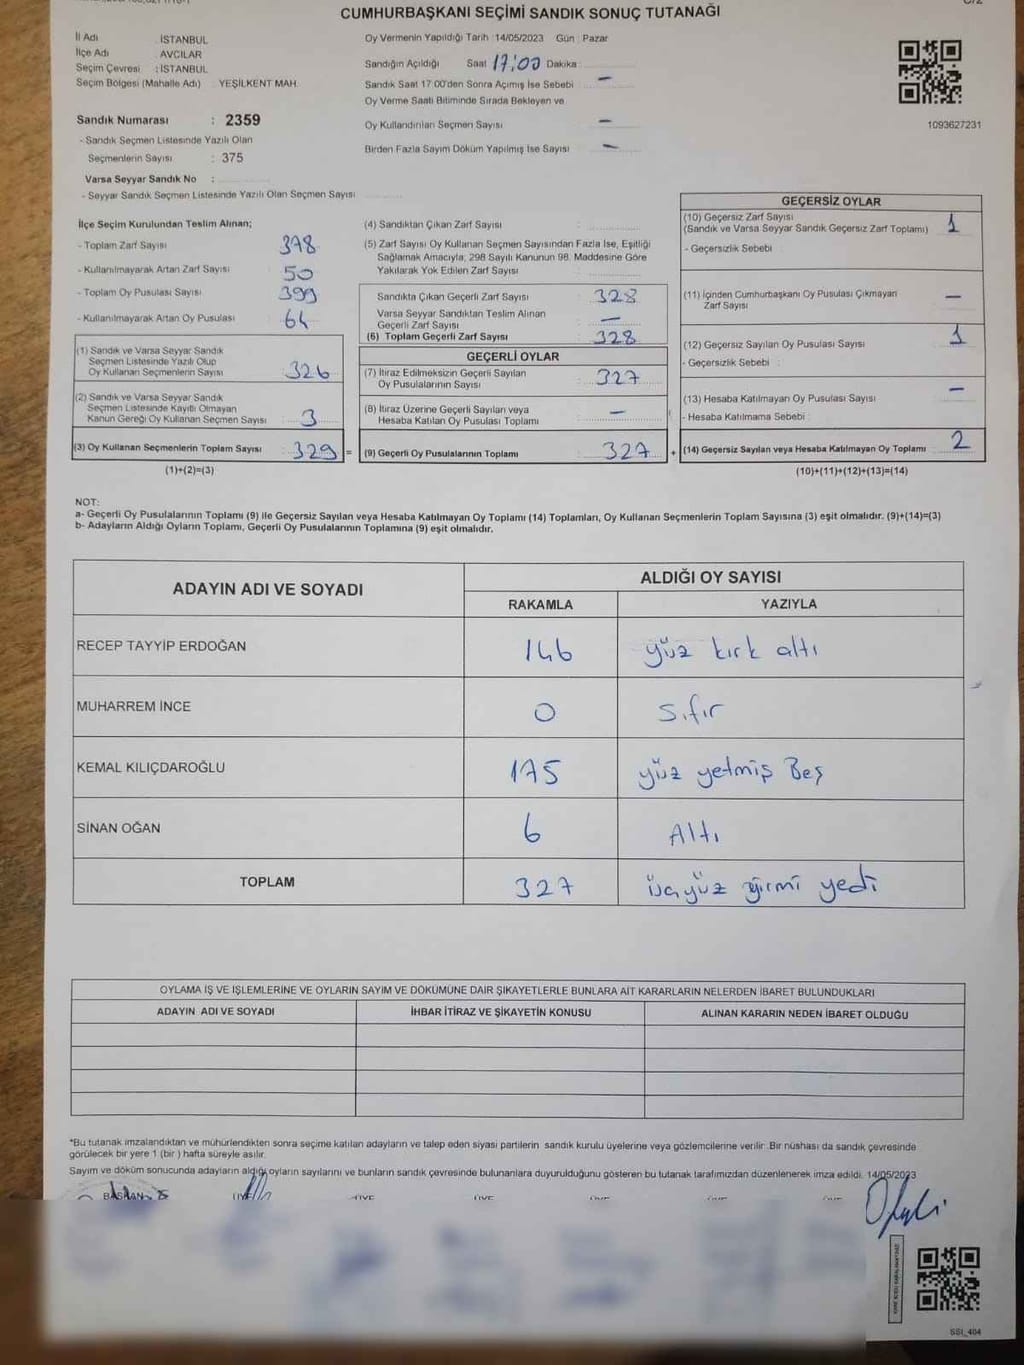 CUMHURBAŞKANI SEÇİMİ SANDIK SONUÇ TUTANAĞI
İl Adı İSTANBUL
İlçe Adı AVCILAR
Seçim Çevresi : İSTANBUL
Seçim Bölgesi (Mahalle Adı) YEŞİLKENT MAH.
Sandık Numarası : 2359
- Sandık Seçmen Listesinde Yazılı Olan
Seçmenlerin Sayısı : 375
Varsa Seyyar Sandık No :
- Seyyar Sandık Seçmen Listesinde Yazılı Olan Seçmen Sayısı
Oy Vermenin Yapıldığı Tarih : 14/05/2023 Gün : Pazar
Sandığın Açıldığı Saat 17:00 Dakika :
Sandık Saat 17.00'den Sonra Açımış İse Sebebi : —
Oy Verme Saati Bitiminde Sırada Bekleyen ve
Oy Kullandırılan Seçmen Sayısı —
Birden Fazla Sayım Döküm Yapılmış İse Sayısı —
1093627231
İlçe Seçim Kurulundan Teslim Alınan;
- Toplam Zarf Sayısı 378
- Kullanılmayarak Artan Zarf Sayısı 50
- Toplam Oy Pusulası Sayısı 399
- Kullanılmayarak Artan Oy Pusulası 64
(1) Sandık ve Varsa Seyyar Sandık
Seçmen Listesinde Yazılı Olup
Oy Kullanan Seçmenlerin Sayısı 326
(2) Sandık ve Varsa Seyyar Sandık
Seçmen Listesinde Kayıtlı Olmayan
Kanun Gereği Oy Kullanan Seçmen Sayısı : 3
(3) Oy Kullanan Seçmenlerin Toplam Sayısı : 329 =
(1)+(2)=(3)
(4) Sandıktan Çıkan Zarf Sayısı :
(5) Zarf Sayısı Oy Kullanan Seçmen Sayısından Fazla İse, Eşitliği
Sağlamak Amacıyla; 298 Sayılı Kanunun 98. Maddesine Göre
Yakılarak Yok Edilen Zarf Sayısı :
Sandıkta Çıkan Geçerli Zarf Sayısı : 328
Varsa Seyyar Sandıktan Teslim Alınan
Geçerli Zarf Sayısı : —
(6) Toplam Geçerli Zarf Sayısı 328
GEÇERLİ OYLAR
(7) İtiraz Edilmeksizin Geçerli Sayılan
Oy Pusulalarının Sayısı : 327
(8) İtiraz Üzerine Geçerli Sayılan veya
Hesaba Katılan Oy Pusulası Toplamı : —
(9) Geçerli Oy Pusulalarının Toplamı : 327 +
GEÇERSİZ OYLAR
(10) Geçersiz Zarf Sayısı
(Sandık ve Varsa Seyyar Sandık Geçersiz Zarf Toplamı) 1
- Geçersizlik Sebebi :
(11) İçinden Cumhurbaşkanı Oy Pusulası Çıkmayan
Zarf Sayısı —
(12) Geçersiz Sayılan Oy Pusulası Sayısı 1
- Geçersizlik Sebebi :
(13) Hesaba Katılmayan Oy Pusulası Sayısı —
- Hesaba Katılmama Sebebi :
(14) Geçersiz Sayılan veya Hesaba Katılmayan Oy Toplamı 2
(10)+(11)+(12)+(13)=(14)
NOT:
a- Geçerli Oy Pusulalarının Toplamı (9) ile Geçersiz Sayılan veya Hesaba Katılmayan Oy Toplamı (14) Toplamları, Oy Kullanan Seçmenlerin Toplam Sayısına (3) eşit olmalıdır. (9)+(14)=(3)
b- Adayların Aldığı Oyların Toplamı, Geçerli Oy Pusulalarının Toplamına (9) eşit olmalıdır.
ADAYIN ADI VE SOYADI ALDIĞI OY SAYISI
RAKAMLA YAZIYLA
RECEP TAYYİP ERDOĞAN 146 yüz kırk altı
MUHARREM İNCE 0 sıfır
KEMAL KILIÇDAROĞLU 175 yüz yetmiş Beş
SİNAN OĞAN 6 Altı
TOPLAM 327 üçyüz yirmi yedi
OYLAMA İŞ VE İŞLEMLERİNE VE OYLARIN SAYIM VE DÖKÜMÜNE DAİR ŞİKAYETLERLE BUNLARA AİT KARARLARIN NELERDEN İBARET BULUNDUKLARI
ADAYIN ADI VE SOYADI İHBAR İTİRAZ VE ŞİKAYETİN KONUSU ALINAN KARARIN NEDEN İBARET OLDUĞU
*Bu tutanak imzalandıktan ve mühürlendikten sonra seçime katılan adayların ve talep eden siyasi partilerin sandık kurulu üyelerine veya gözlemcilerine verilir. Bir nüshası da sandık çevresinde
görülecek bir yere 1 (bir) hafta süreyle asılır.
Sayım ve döküm sonucunda adayların aldığı oyların sayılarını ve bunların sandık çevresinde bulunanlara duyurulduğunu gösteren bu tutanak tarafımızdan düzenlenerek imza edildi. 14/05/2023
BAŞKAN
SSI_404